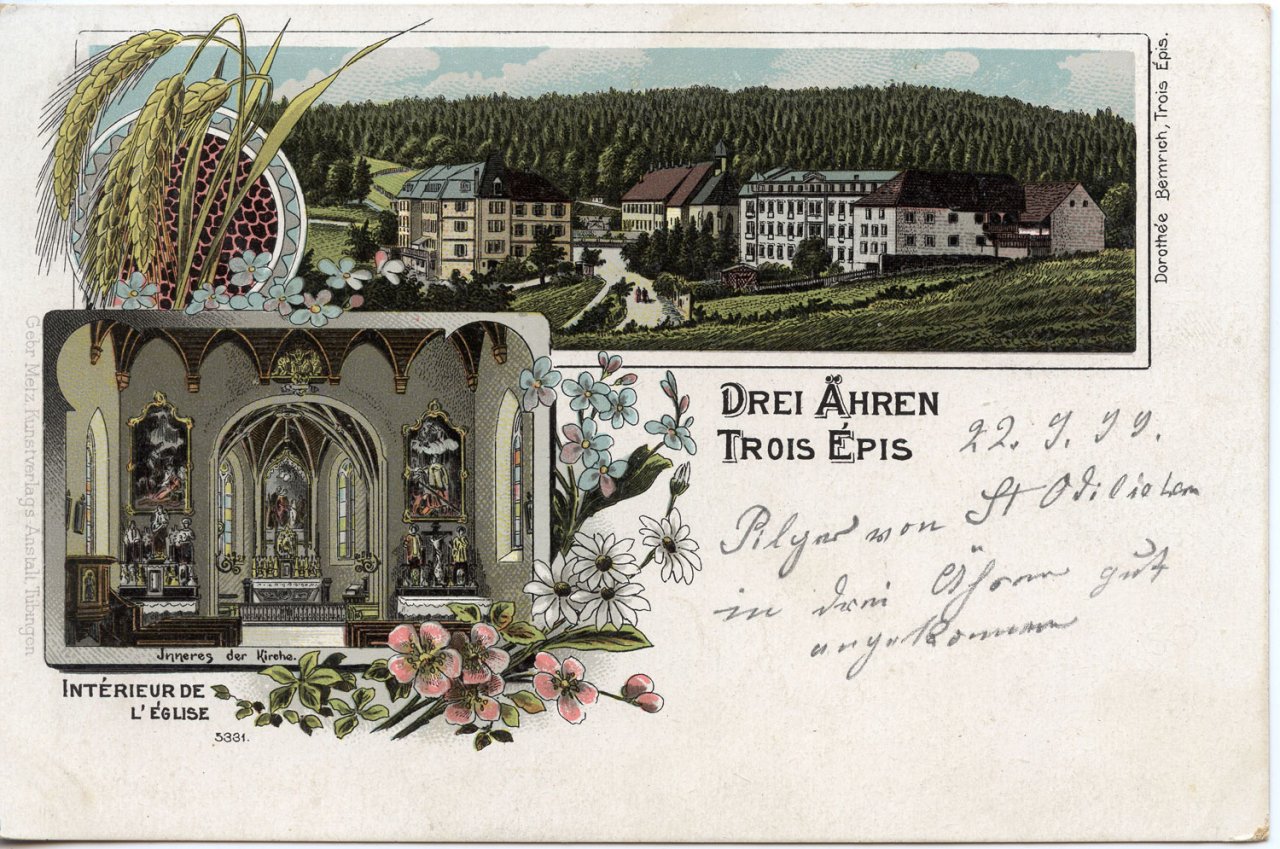 Dorothée Bernrich, Trois Épis.
Gebr. Metz, Kunstverlags Anstalt, Tübingen
DREI ÄHREN
TROIS ÉPIS
22. 9. 99.
Pilger von St Odilien
in drei Ähren gut
angekommen
Inneres der Kirche.
INTÉRIEUR DE
L'ÉGLISE
5331.